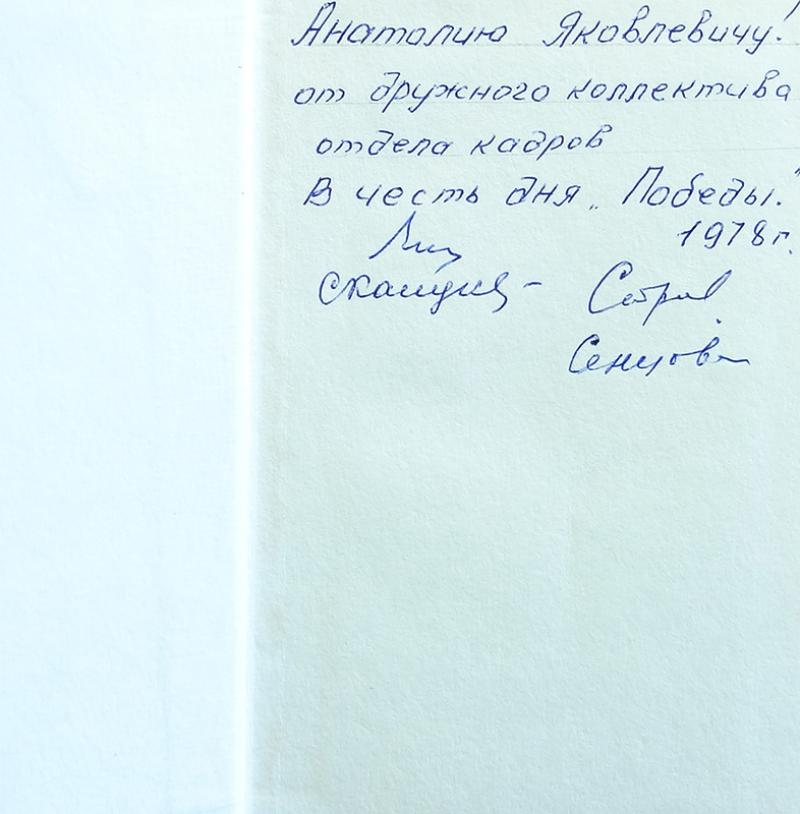 Анатолию Яковлевичу!
от дружного коллектива
отдела кадров
В честь дня „Победы."
1978г.
Сенцова